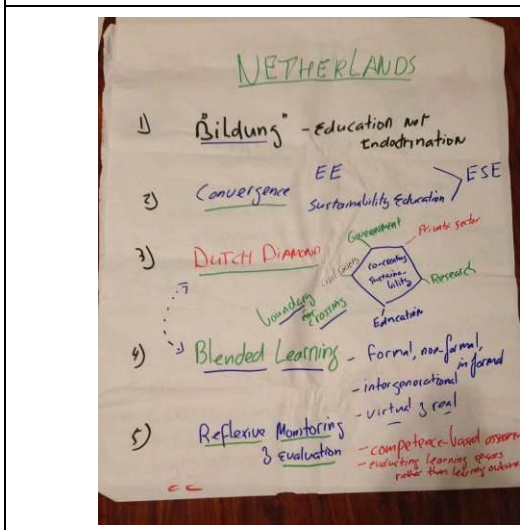 NETHERLANDS
1) "Bildung" - Education not
Endoctrination
2) Convergence EE
Sustainability Education > ESE
3) DUTCH DIAMOND
Government
Private sector
Civil Society
co-creating
sustaina-
bility
Research
Education
boundary
crossing
4) Blended Learning - formal, non-formal,
informal
- intergenerational
- virtual & real
5) Reflexive Monitoring
& evaluation
- competence-based
- evaluating learning
rather than learning